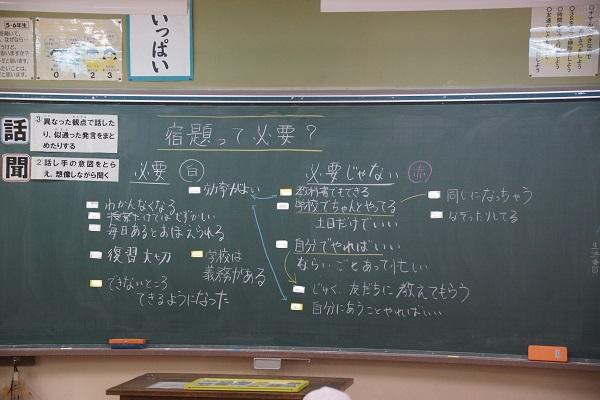 いっぱい
5・6年生
0 1 2 3
話
3 異なった観点で話した
り、似通った発言をまと
めたりする
聞
2 話し手の意図をとら
え、想像しながら聞く
宿題って必要?
必要 白
効率がよい
わかんなくなる
授業だけではむずかしい
毎日あるとおぼえられる
復習大切
学校は
義務がある
できないところ
できるようになった
必要じゃない 赤
教科書でもできる
学校でちゃんとやってる
土日だけでいい
自分でやればいい
ならいごとあって忙しい
じゅく、友だちに教えてもらう
自分にあうことやればいい
同じになっちゃう
なぞったりしてる